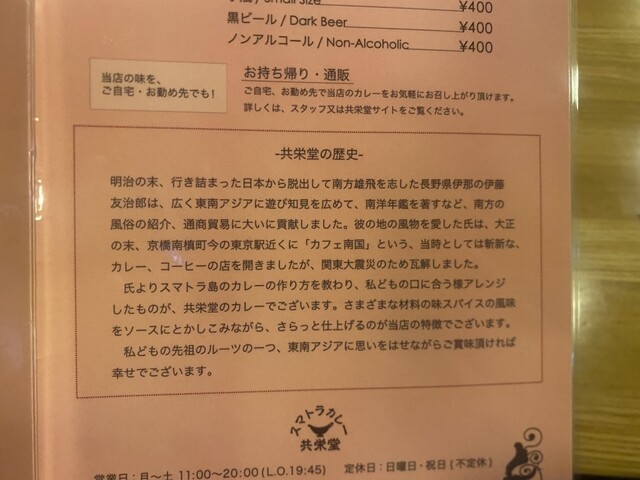 小瓶 / Small Size ¥400
黒ビール / Dark Beer ¥400
ノンアルコール / Non-Alcoholic ¥400
当店の味を、
ご自宅・お勤め先でも!
お持ち帰り・通販
ご自宅、お勤め先で当店のカレーをお気軽にお召し上がり頂けます。
詳しくは、スタッフ又は共栄堂サイトをご覧ください。
-共栄堂の歴史-
明治の末、行き詰まった日本から脱出して南方雄飛を志した長野県伊那の伊藤
友治郎は、広く東南アジアに遊び知見を広めて、南洋年鑑を著すなど、南方の
風俗の紹介、通商貿易に大いに貢献しました。彼の地の風物を愛した氏は、大正
の末、京橋南槙町今の東京駅近くに「カフェ南国」という、当時としては斬新な、
カレー、コーヒーの店を開きましたが、関東大震災のため瓦解しました。
氏よりスマトラ島のカレーの作り方を教わり、私どもの口に合う様アレンジ
したものが、共栄堂のカレーでございます。さまざまな材料の味スパイスの風味
をソースにとかしこみながら、さらっと仕上げるのが当店の特徴でございます。
私どもの先祖のルーツの一つ、東南アジアに思いをはせながらご賞味頂ければ
幸せでございます。
スマトラカレー
共栄堂
営業日:月〜土 11:00〜20:00 (L.O.19:45) 定休日:日曜日・祝日 (不定休)